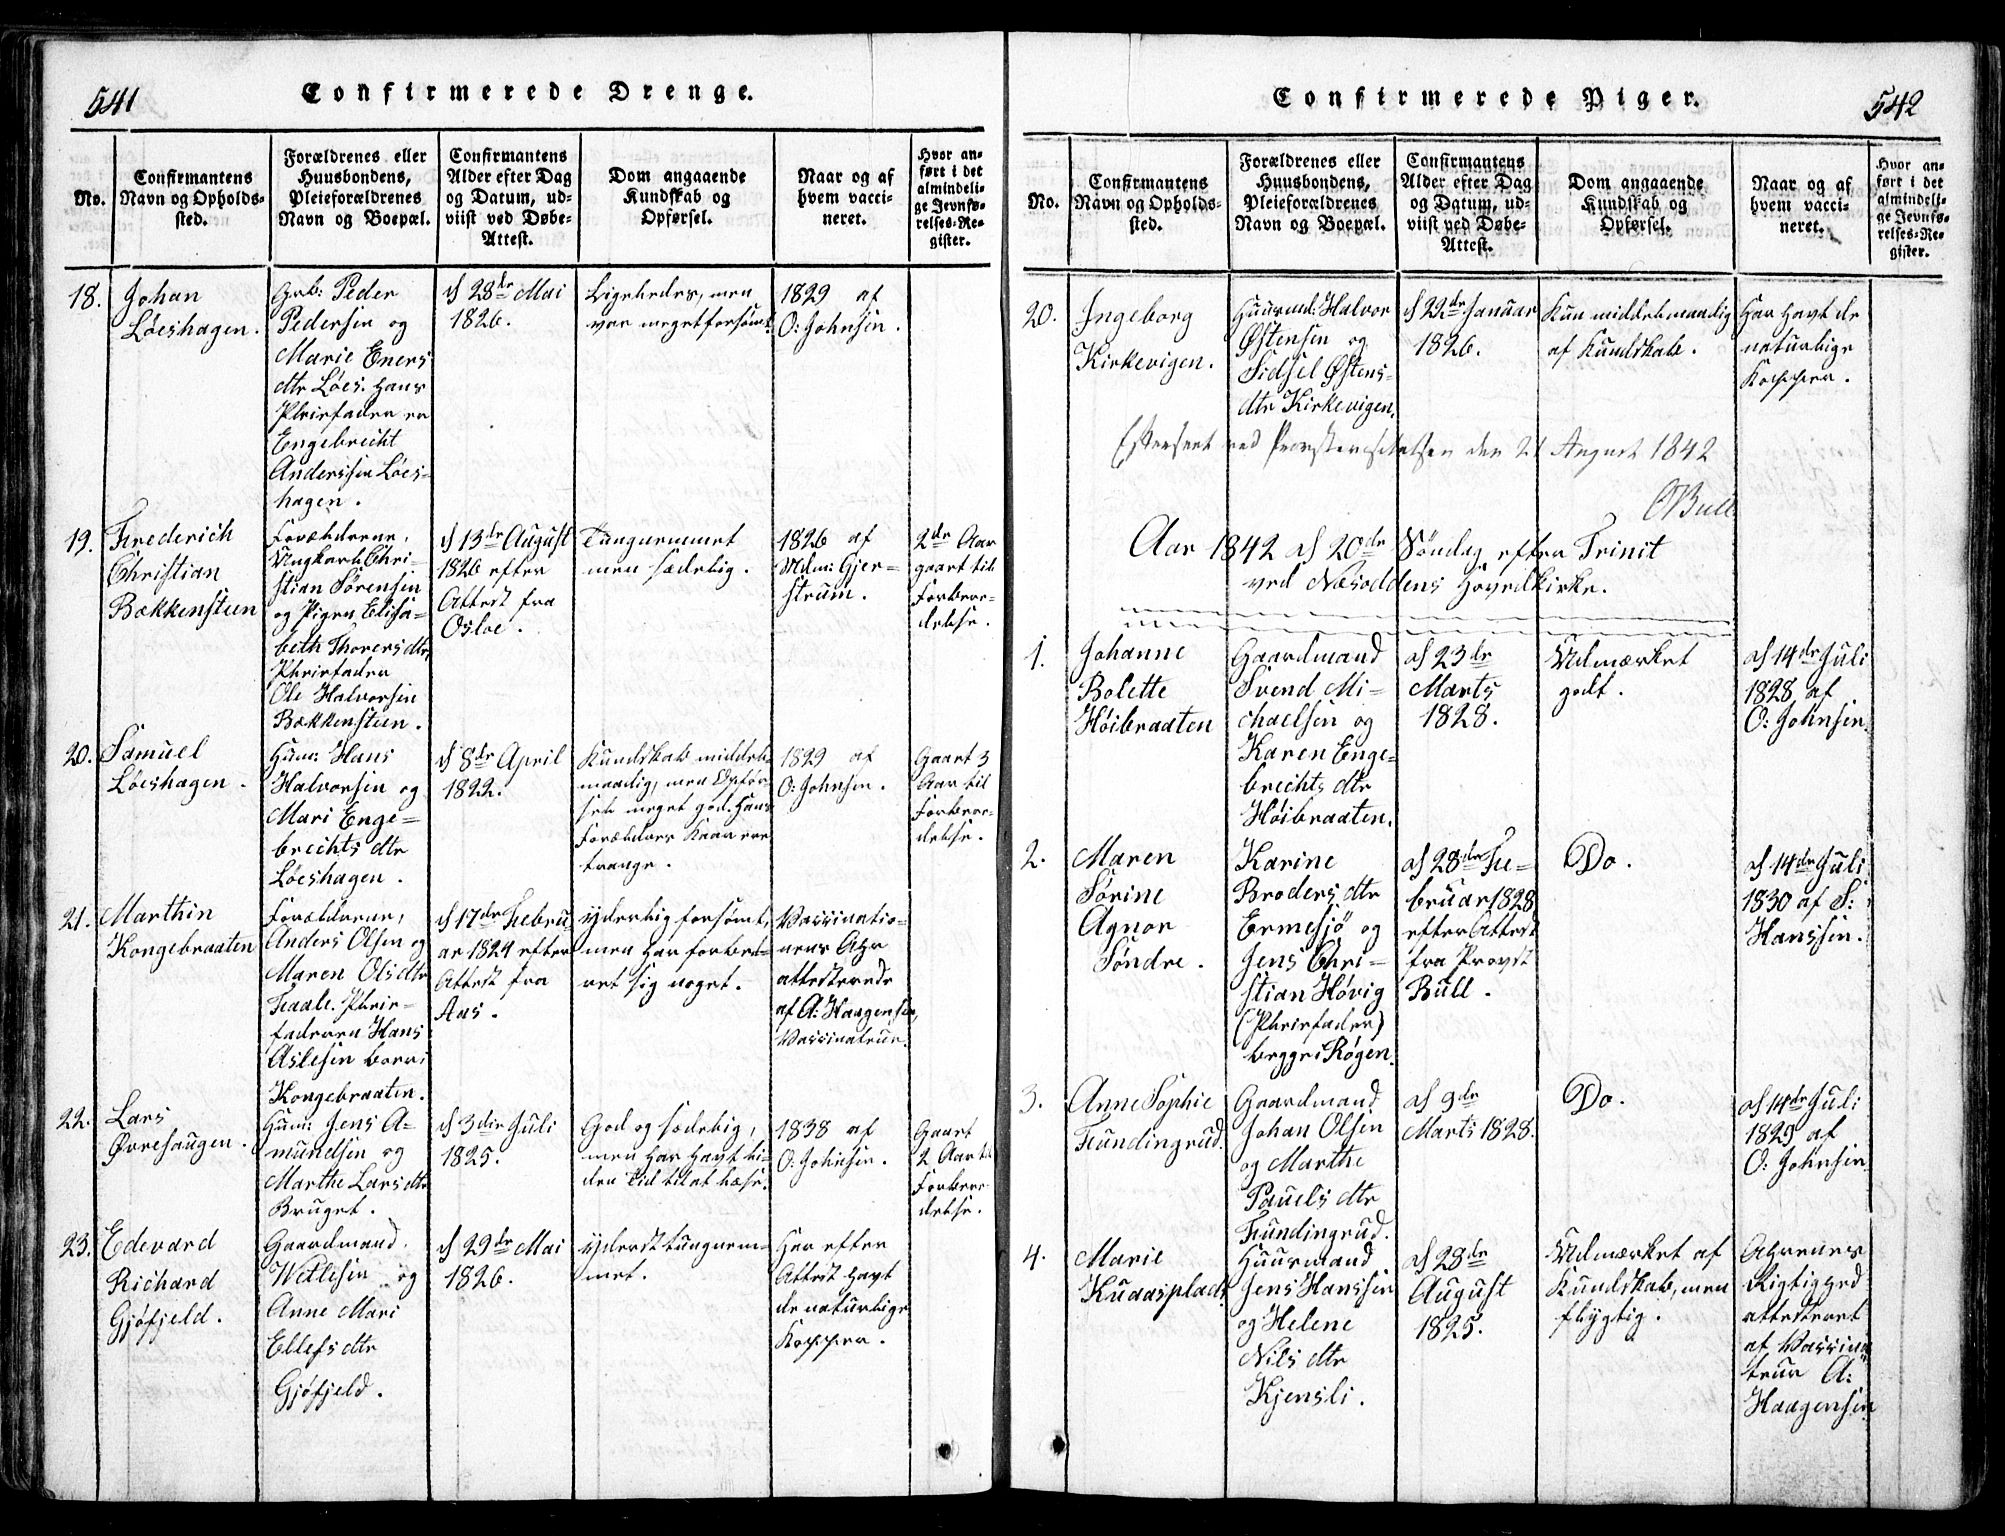 541
Confirmerede Drenge.
No.
Confirmantens
Navn og Opholds-
sted.
Forældrenes eller
Huusbondens,
Pleieforældrenes
Navn og Boepæl.
Confirmantens
Alder efter Dag
og Datum, ud-
viist ved Døbe-
Attest.
Dom angaaende
Kundskab og
Opførsel.
Naar og af
hvem vacci-
neret.
Hvor an-
ført i det
almindeli-
ge Jevnfø-
relses-Re-
gister.
18.
Johan
Løeshagen.
Grb: Peder
Pedersen og
Marie Eners
dtr Løes. Hans
Pleiefader er
Engebrecht
Anderssen Løes-
hagen.
d 28de Mai
1826.
Ligeledes, men
var meget forsømt.
1829 af
O: Johnsen.
19.
Frederich
Christian
Bækkensteen
Forældrene,
Ungkarl Chri-
stian Sørensen
og Pigen Elisa-
beth Thorersdtr,
Pleiefader
Ole Halvorsen
Bækkensteen.
d 13de August
1826 efter
Attest fra
Osloe.
Tungnemmet
men sædelig.
1826 af
Mdm: Gjer-
strum.
2de Aar
gaaet til
Forbere-
delse.
20.
Samuel
Løeshagen.
Huu: Hans
Halvorsen og
Mari Enge-
brechts dtr
Løeshagen.
d 8de April
1822.
Kundskab middel-
maadig, men Opfør-
sel meget god. Hans
Forældres Kaar ere
trange.
1829 af
O: Johnsen.
Gaaet 3
Aar til
Forbere-
delse.
21.
Marthin
Kongebraaten
Forældrene,
Anders Olsen og
Maren Olsdtr
Fraale. Pleie-
faderen Hans
Aslesen boer i
Kongebraaten.
d 17de Febru-
ar 1824 efter
Attest fra
Aas.
yderlig forsømt,
men har forbed-
ret sig noget.
Vaccinatio-
nens
attesterede
af A: Haagensen,
Vaccinateur.
22.
Lars
Øvrehaugen.
Huu: Jens A-
mundsen og
Marthe Larsdtr
Bruget.
d 3die Juli
1825.
God og sædelig,
men har havt li-
den Tid til at læse.
1838 af
O: Johnsen.
Gaaet
2 Aar til
Forbere-
delse.
23.
Edevard
Richard
Gjøfjeld.
Gaardmand
Wetlesen og
Anne Mari
Ellefsdtr
Gjøfjeld.
d 29de Mai
1826.
yderst tungnem-
met.
Har efter
Attest havt
de naturlige
Kopper.
542
Confirmerede Piger.
No.
Confirmantens
Navn og Opholds-
sted.
Forældrenes eller
Huusbondens,
Pleieforældrenes
Navn og Boepæl.
Confirmantens
Alder efter Dag
og Datum, ud-
viist ved Døbe-
Attest.
Dom angaaende
Kundskab og
Opførsel.
Naar og af
hvem vacci-
neret.
Hvor an-
ført i det
almindeli-
ge Jevnfø-
relses-Re-
gister.
20.
Ingeborg
Kirkevigen.
Huusmd: Halvor
Østensen og
Sidsel Østens-
dtr Kirkevigen.
d 22de Januar
1826.
Kun middelmaadig
af Kundskab.
Har havt de
naturlige
Kopper.
Efterseet ved Provstevisitatsen den 21 August 1842
Bull
Aar 1842 d 20de Søndag efter Trinit
ved Næsoddens Hovedkirke.
1.
Johanne
Bolette
Høibraaten
Gaardmand
Svend Mi-
chaelsen og
Karen Enge-
brechts dtr
Høibraaten.
d 23de
Marts
1828.
Udmærket
godt.
d 14de Juli
1828 af
O: Johnsen.
2.
Maren
Sørine
Agnor
Søndre.
Karine
Broders dtr
Ermesjö og
Jens Chri-
stian Høvig
(Pleiefader)
begge i Røgen.
d 28de Fe-
bruar 1828
efter Attest
fra Provst
Bull.
Do.
d 14de Juli
1830 af S:
Hanssen.
3.
Anne Sophie
Fundingrud.
Gaardmand
Johan Olsen
og Marthe
Pauels dtr
Fundingrud.
d 9de
Marts 1828.
Do.
d 14de Juli
1829 af
O: Johnsen
4.
Marie
Knaasplads.
Huusmand
Jens Hanssen
og Helene
Nils dtr
Kjensli.
d 28de
August
1825.
Udmærket af
Kundskab, men
flygtig.
Rigtighed
attesteret
af Vaccina-
teur A:
Haagensen